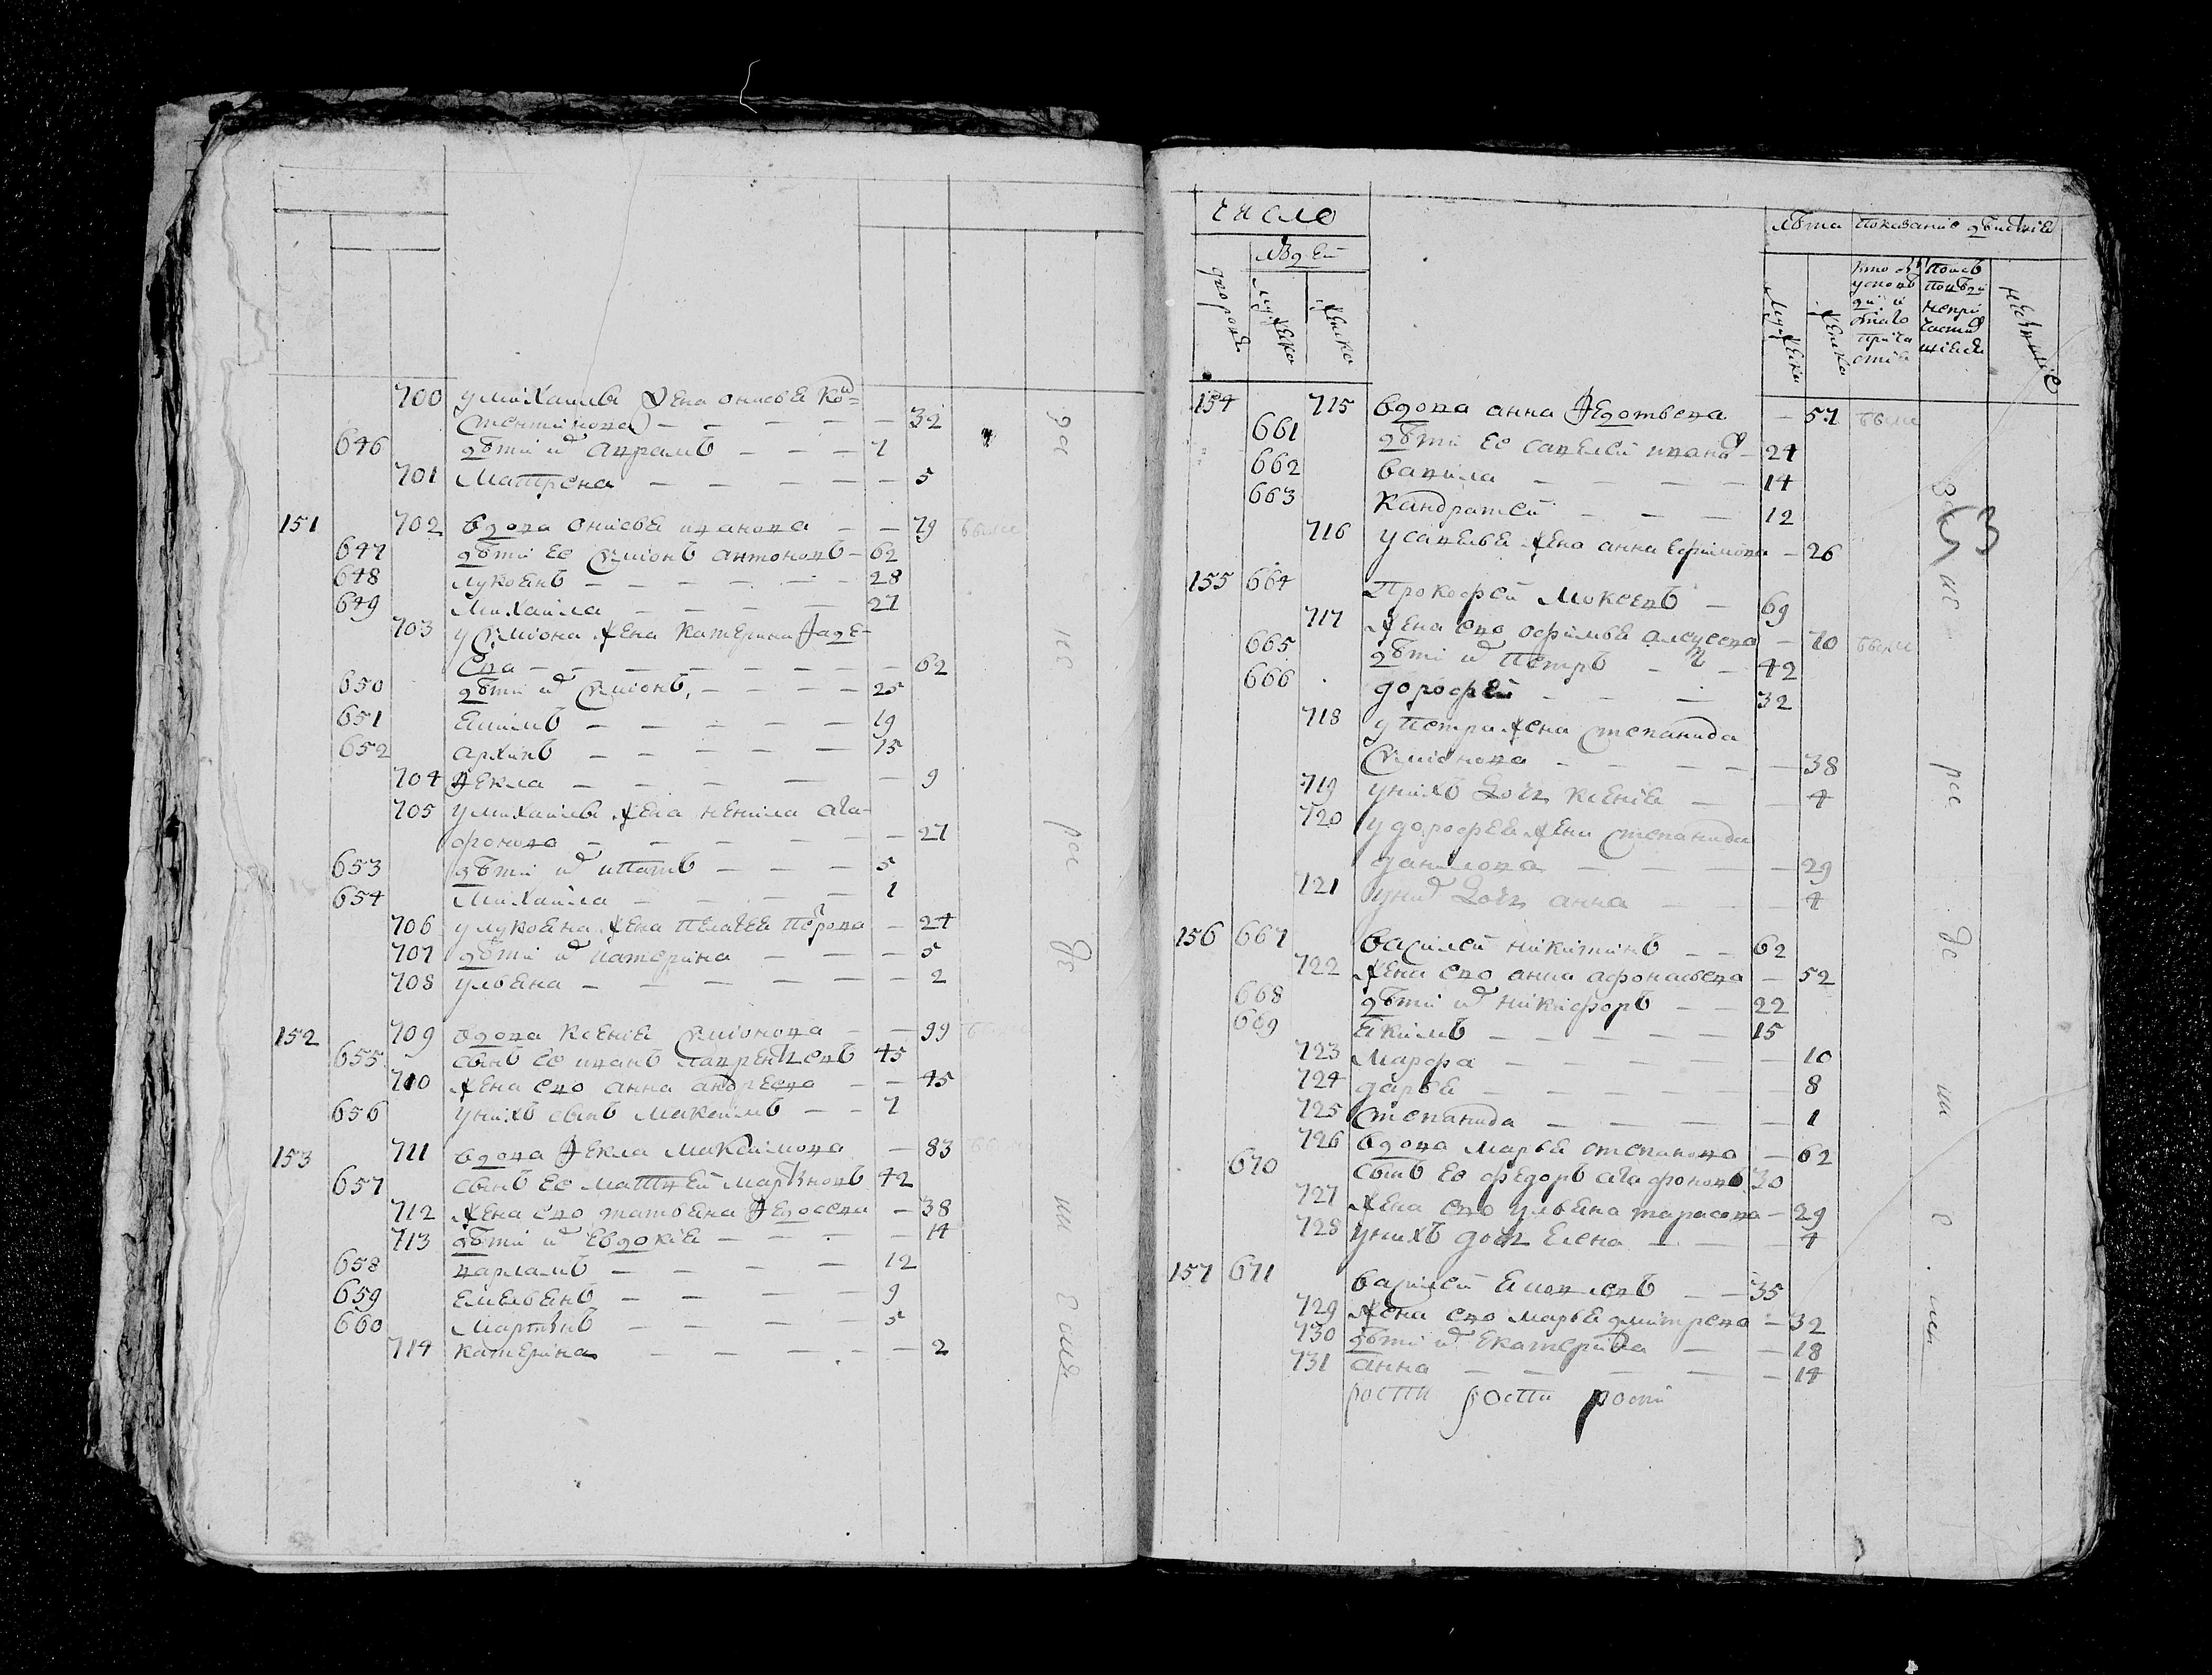 700 у михаилы жена онисья кон=
стентинова — — — — — 32
646 дѣти их аврамъ — — — 7
701 Матрена — — — — — 5
151 702 вдова онисья иванова — — 79
647 дѣти ее симіонъ антоновъ — 62
648 лукоянъ — — — — — 28
649 михаила — — — — — 27
703 у симіона жена катерина фаде=
ева — — — — — — 62
650 дѣти их симіонъ — — — — 25
651 екимъ — — — — — 19
652 архипъ — — — — — 15
704 фекла — — — — — 9
705 у михаилы жена ненила ага=
фонова — — — — — 27
653 дѣти их ипатъ — — — 5
654 михаила — — — — 1
706 у лукояна жена пелагея петрова — 24
707 дѣти их катерина — — — 5
708 ульяна — — — — — — 2
152 709 вдова ксенія симіонова — — 99
655 сынъ ее иванъ лаврентьевъ 45
710 жена ево анна андреева — — 45
656 у нихъ сынъ максимъ — — 7
153 711 вдова фекла максимова — 83
657 сынъ ее матвей мартиновъ 42
712 жена ево татьяна федосева — 38
713 дѣти их евдокія — — — — 14
658 варламъ — — — — 12
659 емельянъ — — — — 9
660 мартинъ — — — — 5
714 катерина — — — — — 2
число
людей
дворовъ
мужеска
женска
лѣта показаніе дѣиствія
мужеска
женска
154 715 вдова анна федотьева — 57
661 дѣти ее савелей иванов — 24
662 вавила — — — — 14
663 кандратей — — — 12
716 у савелья жена анна ефимова — 26
155 664 прокофей мокеевъ — 69
717 жена ево офимья алексеева — 70
665 дѣти их петръ — — 42
666 дорофей — — — 32
718 у петра жена степанида
симіонова — — — — — 38
719 у нихъ дочь ксенія — — 4
720 у дорофея жена степанида
данилова — — — — 29
721 у них дочь анна — — — 4
156 667 василей никитинъ — — 62
722 жена ево анна афонасьева — 52
668 дѣти их никифоръ — — 22
669 якимъ — — — — — 15
723 марфа — — — — — 10
724 дарья — — — — — 8
725 степанида — — — — 1
726 вдова марья степанова — 62
670 сынъ ее федоръ агафоновъ 30
727 жена ево ульяна тарасова — 29
728 у нихъ дочь елена — — — 4
157 671 василей яковлевъ — — 35
729 жена ево марья дмитрева — 32
730 дѣти их екатерина — — 18
731 анна — — — — — 14